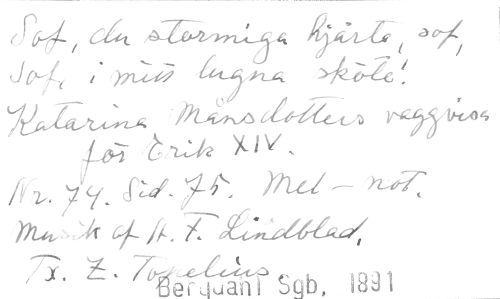 Sof, du stormiga hjärta, sof,
Sof, i mitt lugna sköte!
Katarina Månsdotters vaggvisa
för Erik XIV.
Nr. 74. Sid. 75. Mel-not.
Musik af A. F. Lindblad.
Tx. Z. Topelius
Berquant Sgb, 1891